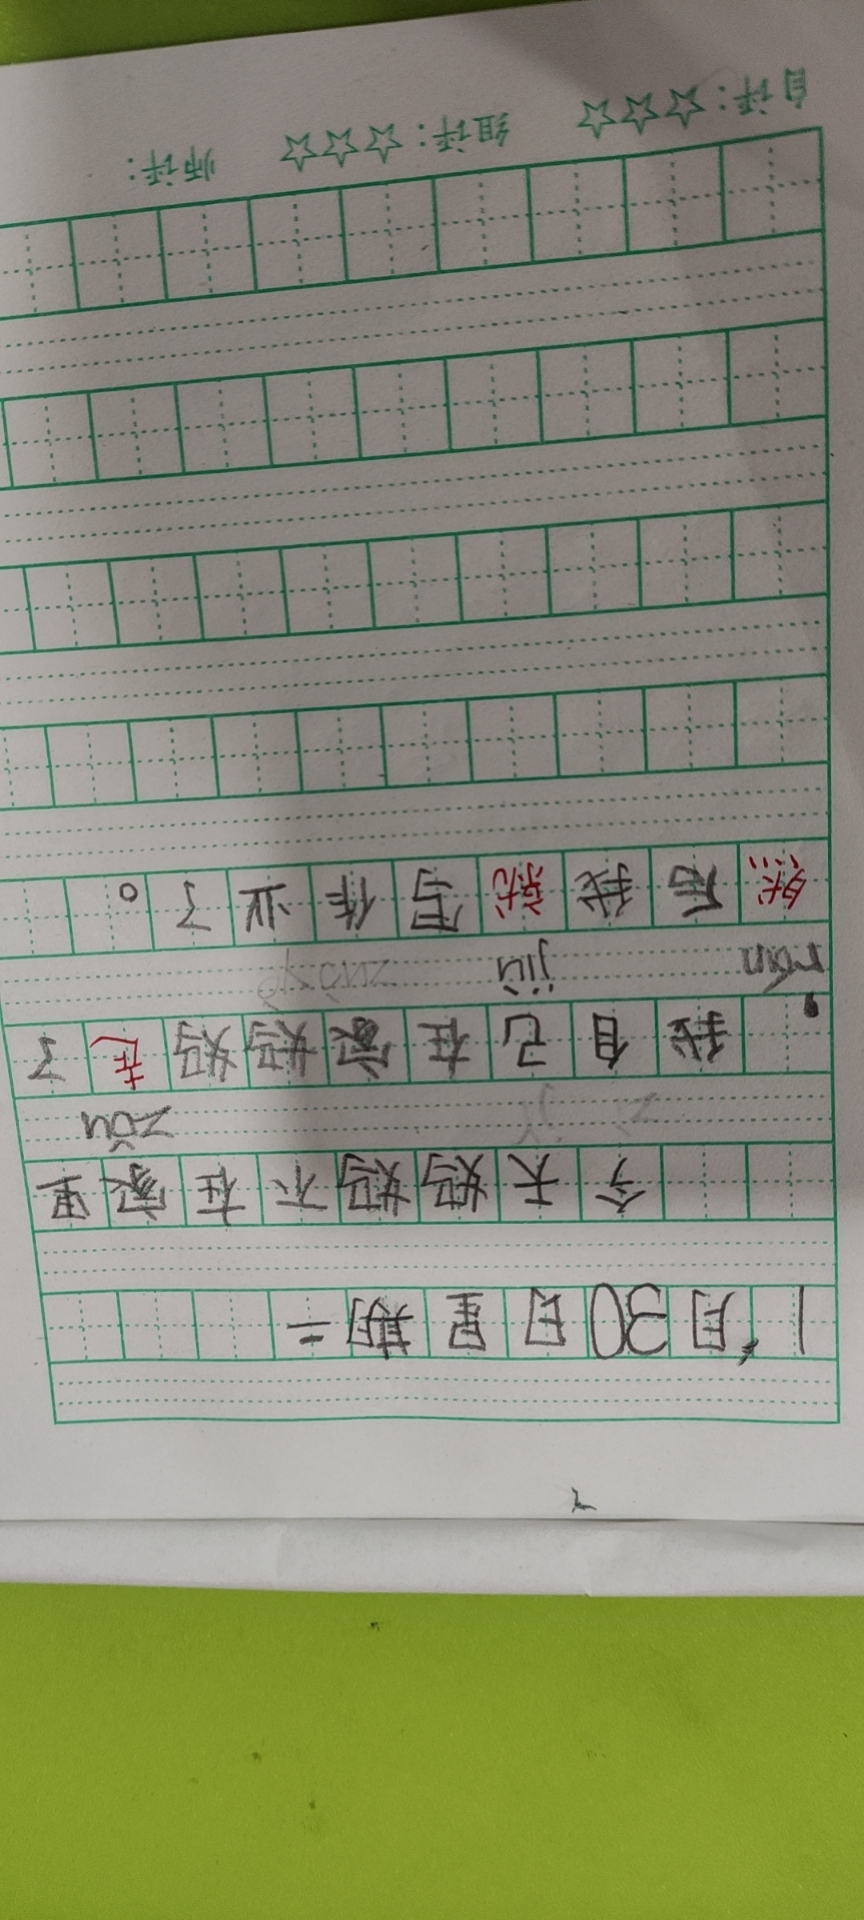 1月30日星期二
今天妈妈不在家里
zǒu
，我自己在家妈妈走了
rán jiù
然后我就写作业了。
自评：☆☆☆ 组评：☆☆☆ 师评：